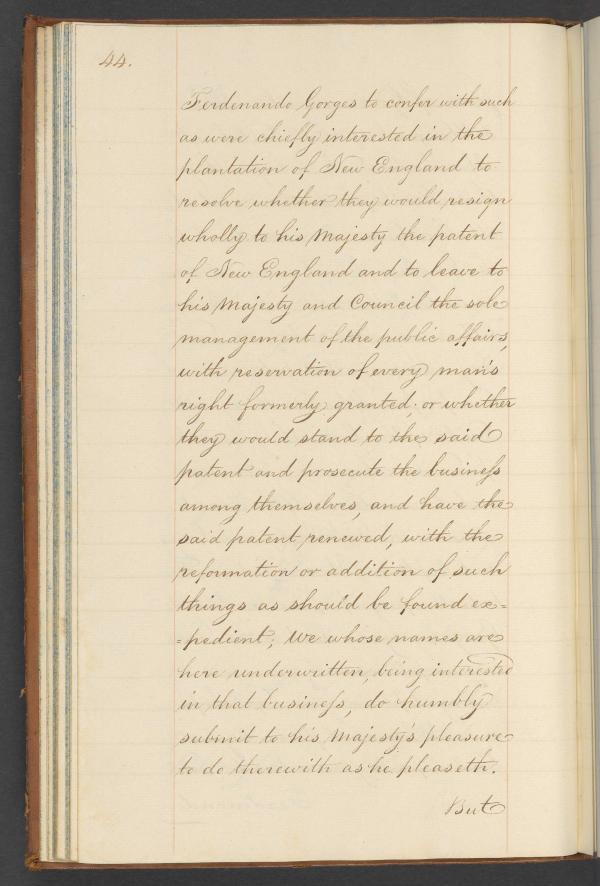 44.
Ferdenando Gorges to confer with such
as were chiefly interested in the
plantation of New England to
resolve whether they would resign
wholly to his Majesty the patent
of New England and to leave to
his Majesty and Council the sole
management of the public affairs,
with reservation of every man's
right formerly granted; or whether
they would stand to the said
patent and prosecute the businefs
among themselves, and have the
said patent renewed, with the
reformation or addition of such
things as should be found ex=
=pedient; We whose names are
here underwritten, being interested
in that businefs, do humbly
submit to his Majesty's pleasure
to do therewith as he pleaseth.
But